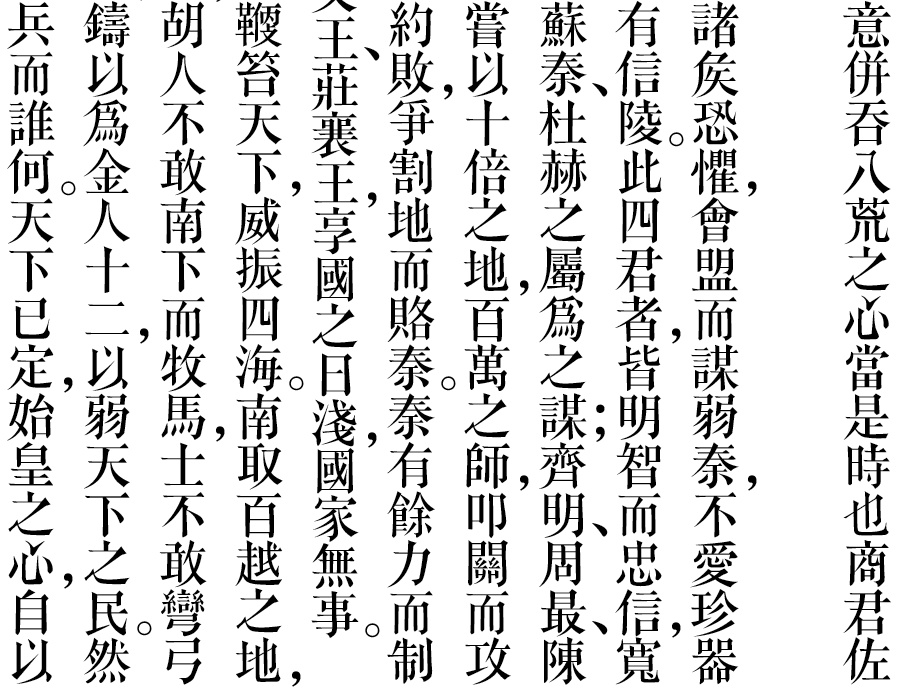 意併吞八荒之心當是時也商君佐
諸矦恐懼，會盟而謀弱秦，不愛珍器
有信陵。此四君者，皆明智而忠信，寬
蘇秦、杜赫之屬爲之謀；齊明、周最、陳
嘗以十倍之地，百萬之師，叩關而攻
約敗，爭割地而賂秦。秦有餘力而制
王、莊襄王，享國之日淺，國家無事。
鞭笞天下，威振四海。南取百越之地，
胡人不敢南下而牧馬，士不敢彎弓
鑄以爲金人十二，以弱天下之民。然
兵而誰何。天下已定，始皇之心，自以